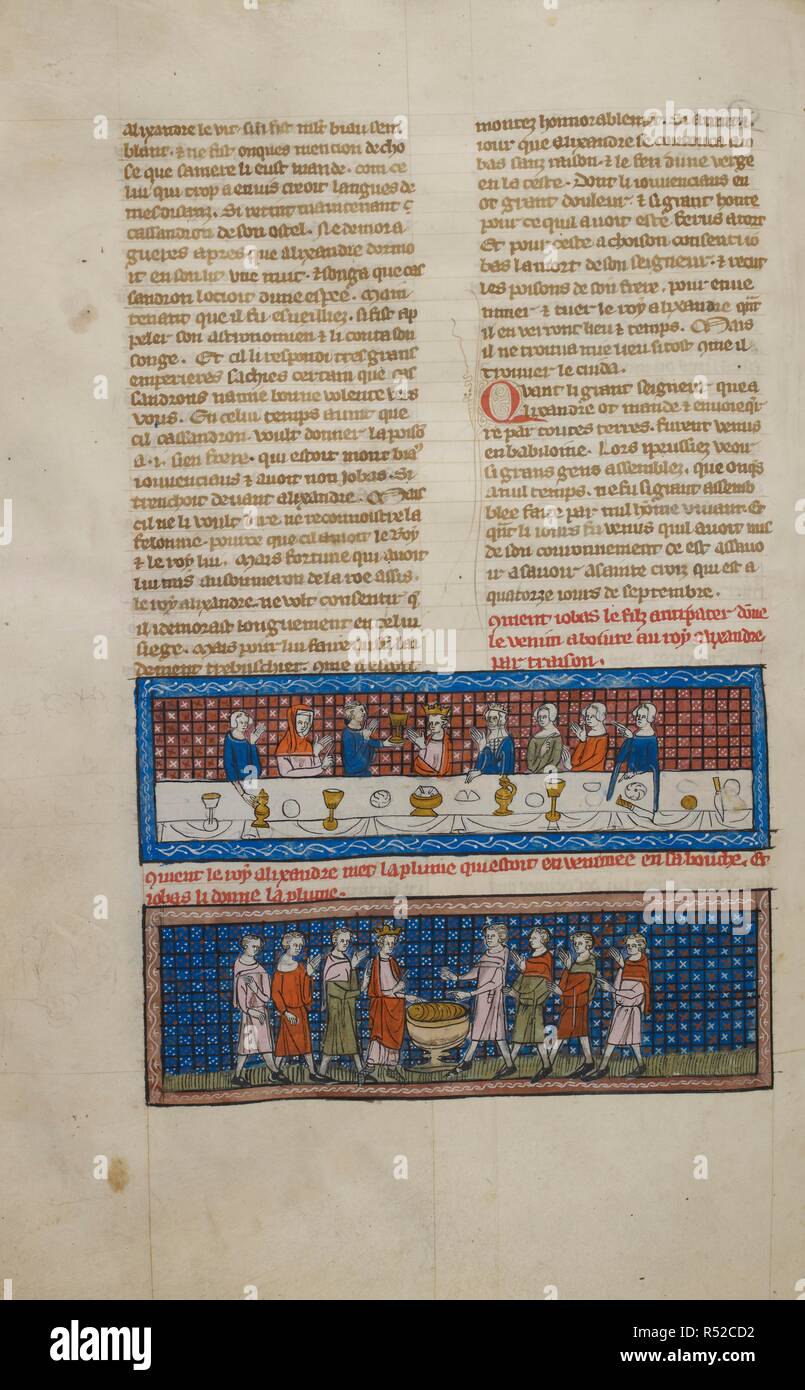 alixandre le vit si li fist mlt biau sem
blant. & ne fist onques mention de cho
se que sa mere li eust mande. com ce
lui qui trop a enuis croit langues de
mesdisanz. Si retint maintenant
cassandron de son ostel. Ne demora
gueres apres que alixandre dormo
it en son lit vne nuit. & songa que cas
sandron locioit dune espee. Main
tenant que il fu esueilliez. si fist ap
peler son astronomien & li conta son
songe. Et cil li respondi tres grans
emperieres sachies certain que cas
sandrons na nne bonne volente vers
vous. En celui temps auint que
cil cassandron voult donner la poiso
a .i. sien frere. qui estoit mout biax
iouuenciaus & auoit non iobas. Si
trenchoit deuant alixandre. Mais
cil ne li voult dire ne reconnoistre la
felonnie. pource que cil amoit le roy
& le roy lui. Mais fortune qui auoit
lui mis au sommeron de la roe assis.
le roy alixandre. ne volt consentir q
il idemorast longuement en celui
siege. Mais pour lui faire
dement trebuschier.
montez honnorablement. Si auint .i.
iour que alixandre se courouca a io
bas sanz raison. & le feri dune verge
en la teste. Dont li iouuenciaus en
ot grant douleur. & si grant honte
pour ce quil auoit este ferus a tort
Et pour ceste achoison consenti io
bas la mort de son seigneur. & recut
les poisons de son frere. pour enue
nimer & tuer le roy alixandre qnt
il en verront lieu & temps. Mais
il ne trouua mie lieu si tost que il
trouuer le cuida.
Quant li grant seigneur que a
lixandre ot mande & enuoie qr
re par toutes terres. furent venus
en babiloine. Lors ipeussiez veoir
si grans gens assemblez. que onqs
a nul temps. ne fu si grant assem
blee faite par mil home viuant. Et
qnt li iours fu venus quil auoit mis
de son couronnement ce est assauo
ir a sauoir a sainte croiz qui est a
quatorze iours de septembre.
Coment iobas le filz antipater done
le venim a boiure au roy alixandre
par traison.
Coment le roy alixandre met la plume qui estoit enuenimee en sa bouche. Et
iobas li donne la plume.
alamy
a
Image ID: R52CD2
www.alamy.com